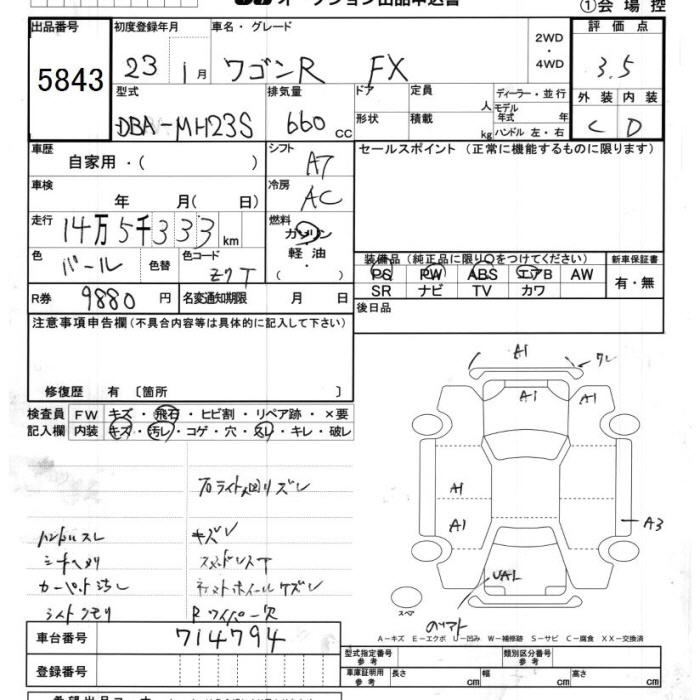 ①会場控
出品番号 初度登録年月 車名・グレード 2WD・4WD 評価点
5843 23 1月 ワゴンR FX 3.5
型式 排気量 ドア 定員 人 ディーラー・並行 外装 内装
DBA-MH23S 660cc 形状 積載 kg モデル年式 年 ハンドル 左・右 C D
車歴 自家用・( ) シフト AT セールスポイント (正常に機能するものに限ります)
車検 年 月( 日) 冷房 AC
走行 14万5千333km 燃料 ガソリン
色 パール 色替 色コード Z7T 軽油・( )
装備品(純正品に限り〇をつけてください) 新車保証書
PS PW ABS エアB AW 有・無
SR ナビ TV カワ
R券 9880円 名変通知期限 月 日 後日品
注意事項申告欄(不具合内容等は具体的に記入して下さい)
修復歴 有 〔箇所 〕
検査員 FW キズ・飛石・ヒビ割・リペア跡・×要
記入欄 内装 キズ・汚レ・コゲ・穴・スレ・キレ・破レ
A1 ワレ
A1 A1
A1
A1 A3
UAL
スペア
ハンドルスレ キズレ
カーペット汚レ
Rワイパー欠
A－キズ E－エクボ U－凹み W－補修跡 S－サビ C－腐食 XX－交換済
車台番号 714794
型式指定番号 参考 類別区分番号 参考
登録番号 車庫証明用 参考 長さ cm 幅 cm 高さ cm